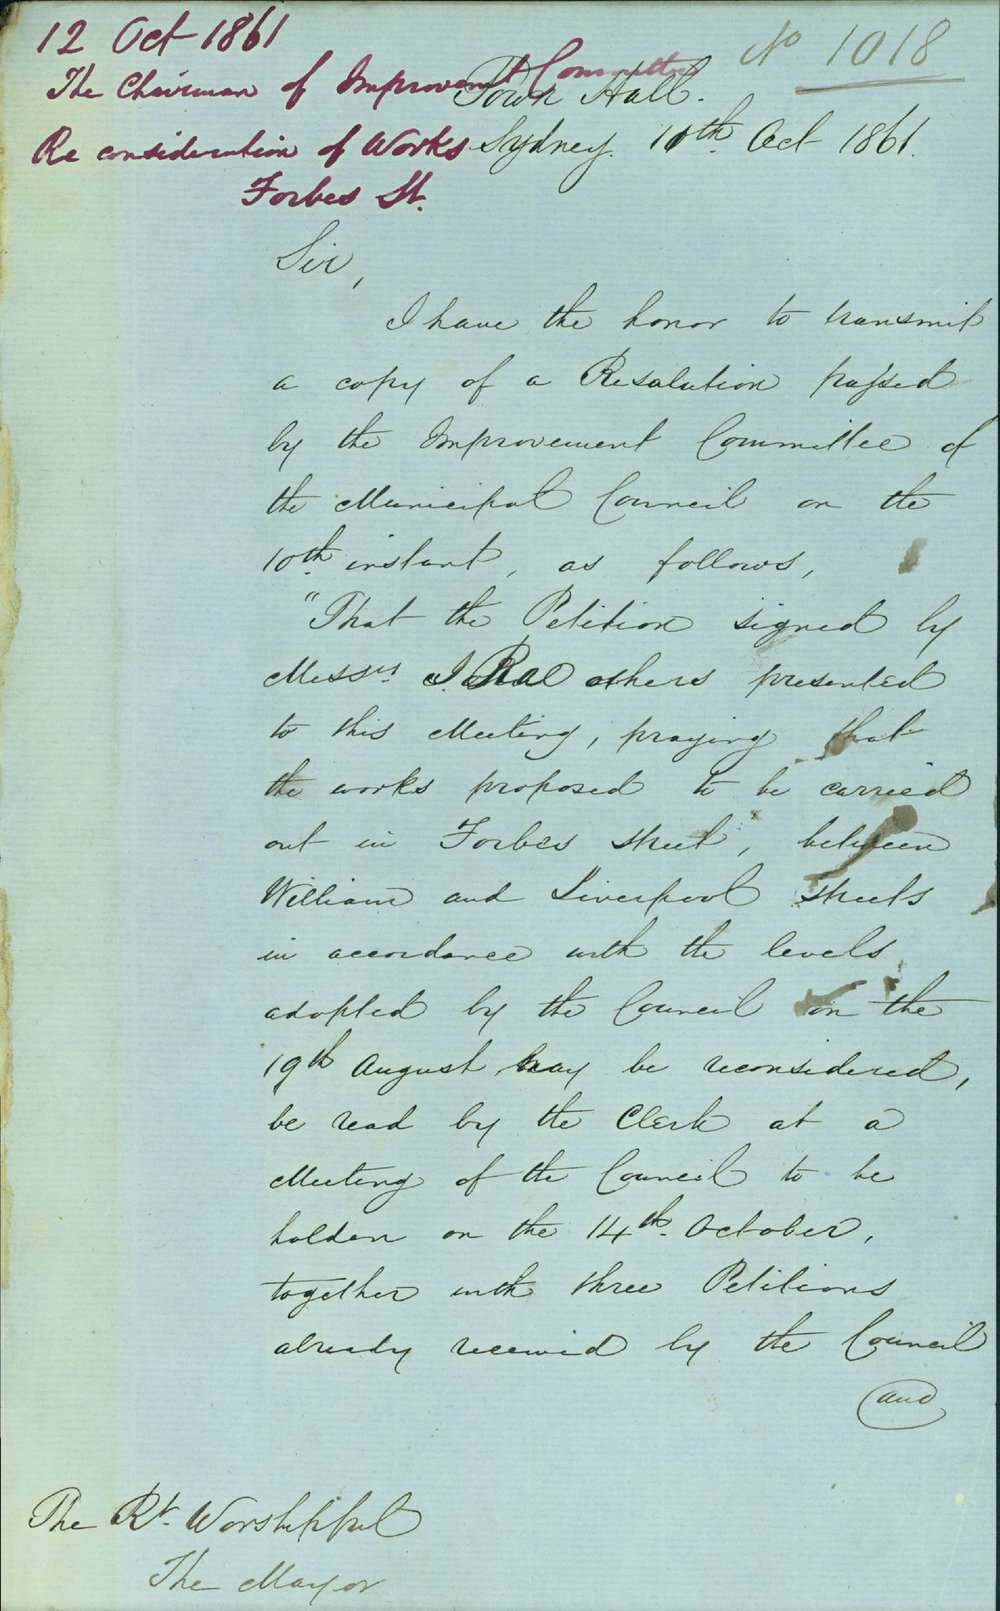 12 Oct 1861
No 1018
The Chairman of Improvemt Committee
Re consideration of Works
Forbes St.
Town Hall.
Sydney. 10th Oct 1861.
Sir,
I have the honor to transmit
a copy of a Resolution passed
by the Improvement Committee of
the Municipal Council on the
10th instant, as follows,
"That the Petition signed by
Messrs. J. Rae others presented
to this Meeting, praying that
the works proposed to be carried
out in Forbes street, between
William and Liverpool streets
in accordance with the levels
adopted by the Council on the
19th August may be reconsidered,
be read by the Clerk at a
Meeting of the Council to be
holden on the 14th. October,
together with three Petitions
already received by the Council
and
The Rt. Worshipful
The Mayor